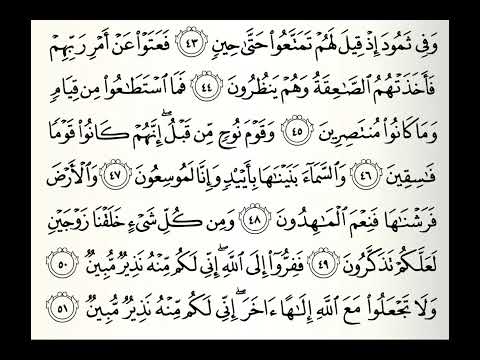 وَفِي ثَمُودَ إِذْ قِيلَ لَهُمْ تَمَتَّعُوا۟ حَتَّىٰ حِينٍ ٤٣ فَعَتَوْا۟ عَنْ أَمْرِ رَبِّهِمْ
فَأَخَذَتْهُمُ ٱلصَّٰعِقَةُ وَهُمْ يَنظُرُونَ ٤٤ فَمَا ٱسْتَطَٰعُوا۟ مِن قِيَامٍ
وَمَا كَانُوا۟ مُنتَصِرِينَ ٤٥ وَقَوْمَ نُوحٍ مِّن قَبْلُ ۖ إِنَّهُمْ كَانُوا۟ قَوْمًا
فَٰسِقِينَ ٤٦ وَٱلسَّمَآءَ بَنَيْنَٰهَا بِأَيْيْدٍ وَإِنَّا لَمُوسِعُونَ ٤٧ وَٱلْأَرْضَ
فَرَشْنَٰهَا فَنِعْمَ ٱلْمَٰهِدُونَ ٤٨ وَمِن كُلِّ شَىْءٍ خَلَقْنَا زَوْجَيْنِ
لَعَلَّكُمْ تَذَكَّرُونَ ٤٩ فَفِرُّوٓا۟ إِلَى ٱللَّهِ ۖ إِنِّى لَكُم مِّنْهُ نَذِيرٌ مُّبِينٌ ٥٠
وَلَا تَجْعَلُوا۟ مَعَ ٱللَّهِ إِلَٰهًا ءَاخَرَ ۖ إِنِّى لَكُم مِّنْهُ نَذِيرٌ مُّبِينٌ ٥١